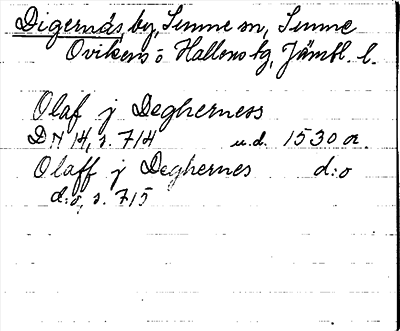 Digernäs, by, Sunne sn, Sunne
Ovikens o Hallens tg, Jämtl. l.
Olaf j Degherness
DN 14, s. 714 u.d. 1530 a.
Olaff j Deghernes d:o
d:o, s. 715